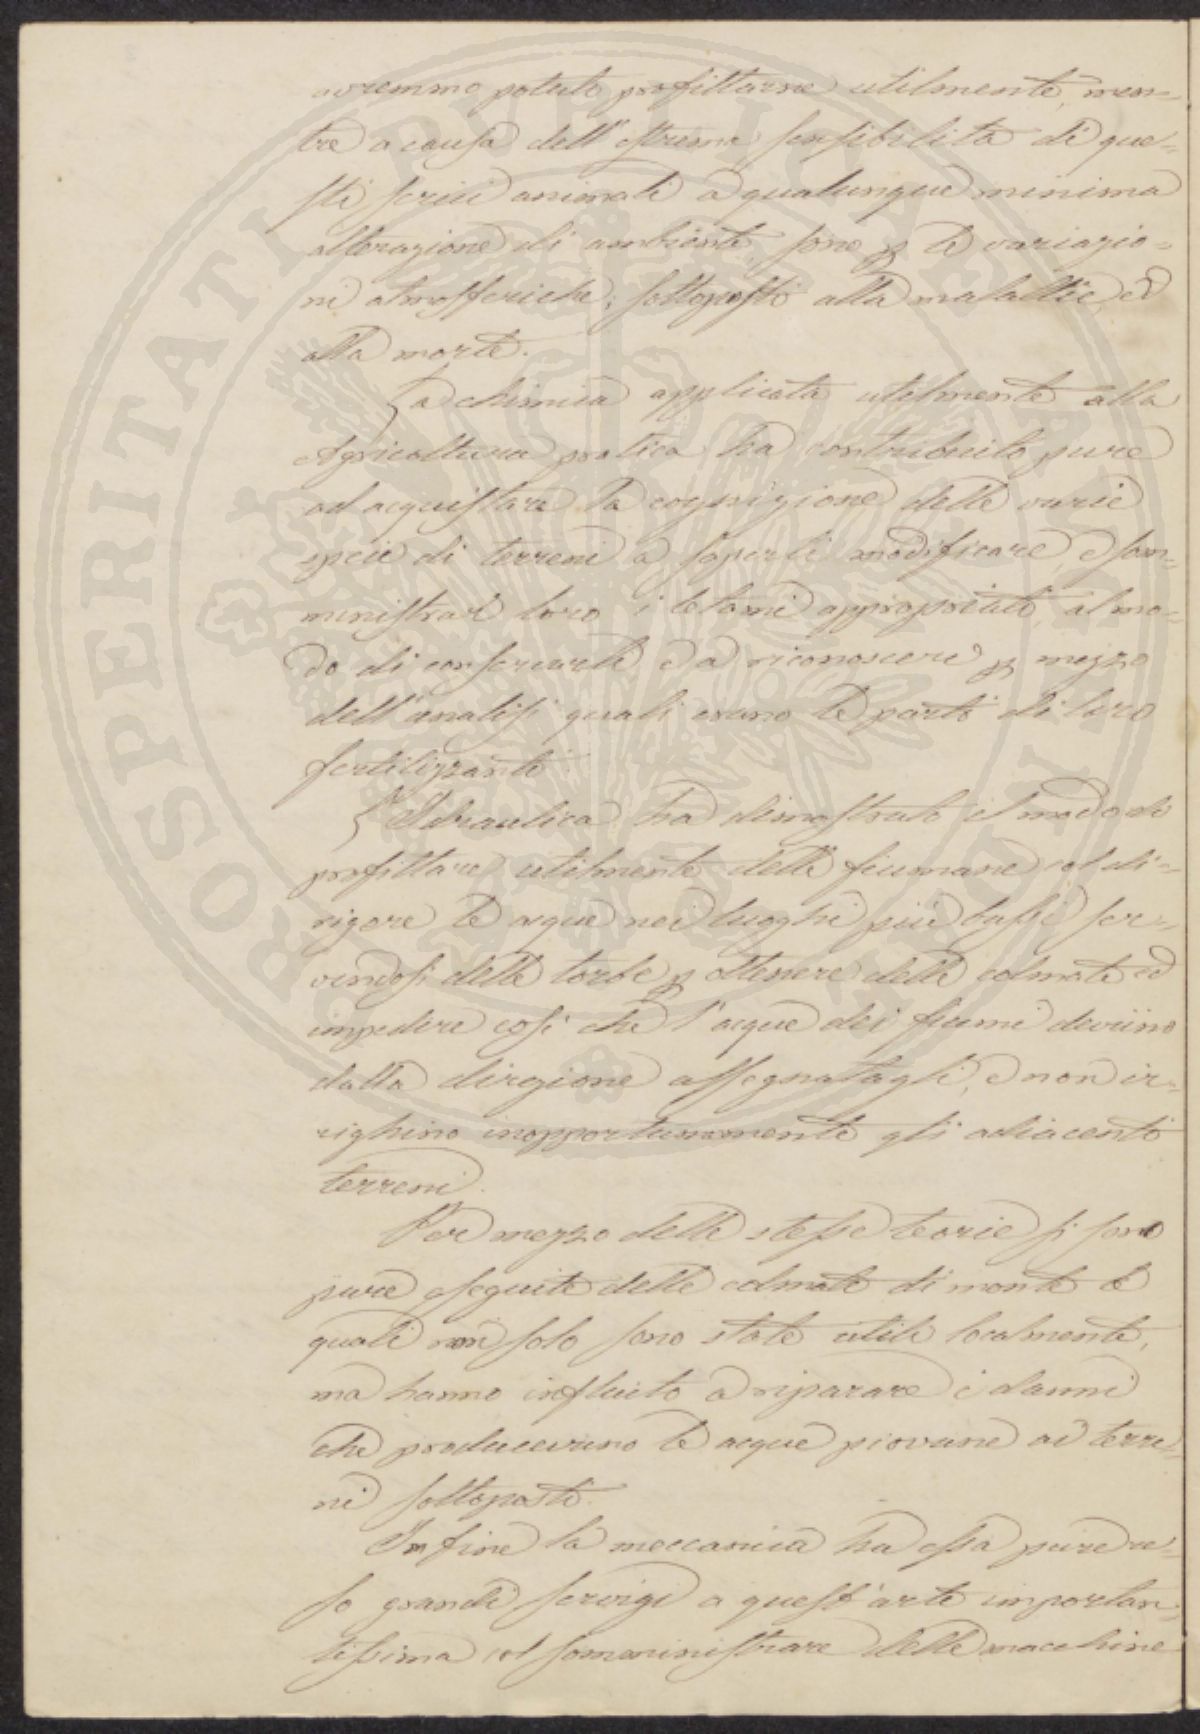 avremmo potuto profittarne utilmente, men=
tre a causa dell'estrema sensibilità di que=
sti serici animali a qualunque minima
alterazione di ambiente, sono p le variazio=
ni atmosferiche, sottoposti alla malattie, ed
alla morte.
La chimica applicata utilmente alla
Agricoltura pratica ha contribuito pure
ad acquistare la cognizione delle varie
specie di terreni a saperli modificare, e som=
ministrar loro i letami appropriati, al mo=
do di conservarli e a riconoscere p mezzo
dell'analisi quali erano le parti di loro
fertilizzanti.
L'Idraulica ha dimostrato il modo di
profittare utilmente delle fiumane col di=
rigere le acque nei luoghi più bassi ser=
vendosi delle torbe p ottenere delle colmate ed
impedire così che l'acque dei fiumi deviino
dalla direzione assegnatagli, e non ir=
righino inopportunamente gli adiacenti
terreni.
Per mezzo delle stesse teorie si sono
pure eseguite delle colmate di monte le
quali non solo sono state utili localmente,
ma hanno influito a riparare i danni
che producevano le acque piovane ai terre=
ni sottoposti.
Infine la meccanica ha essa pure re=
so grandi servigi a quest'arte importan=
tissima col somministrare delle macchine
PROSPERITATI PUBLICAE AUGENDAE